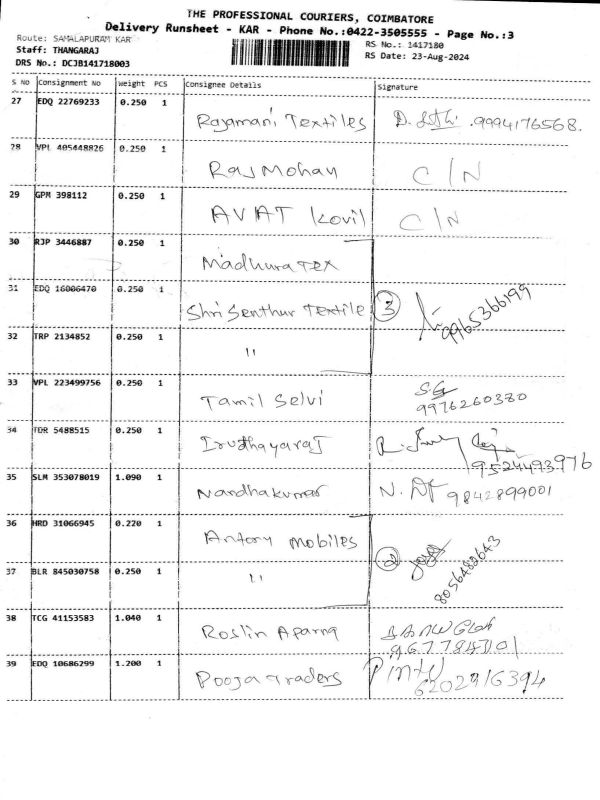 THE PROFESSIONAL COURIERS, COIMBATORE
Delivery Runsheet - KAR - Phone No.:0422-3505555 - Page No.:3
Route: SAMALAPURAM KAR
RS No.: 1417180
Staff: THANGARAJ
RS Date: 23-Aug-2024
DRS No.: DCJB141718003
S No Consignment No Weight PCS Consignee Details Signature
27 EDQ 22769233 0.250 1 Rajamani Textiles 9994176568.
28 VPL 405448826 0.250 1 Raj Mohan C/N
29 GPM 398112 0.250 1 AVAT Kovil C/N
30 RJP 3446887 0.250 1 Madhura TEX
31 EDQ 16006470 0.250 1 Shri Senthur Textile 3 9965366199
32 TRP 2134852 0.250 1 "
33 VPL 223499756 0.250 1 Tamil Selvi S.G
9976260380
34 TDR 5488515 0.250 1 Irudhayaraj
9524493976
35 SLM 353078019 1.090 1 Nandhakumar N. 9842899001
36 HRD 31066945 0.220 1 Antony Mobiles 2 8056482643
37 BLR 845030758 0.250 1 "
38 TCG 41153583 1.040 1 Roslin Aparna
39 EDQ 10686299 1.200 1 Pooja Traders Pintu
6202916394